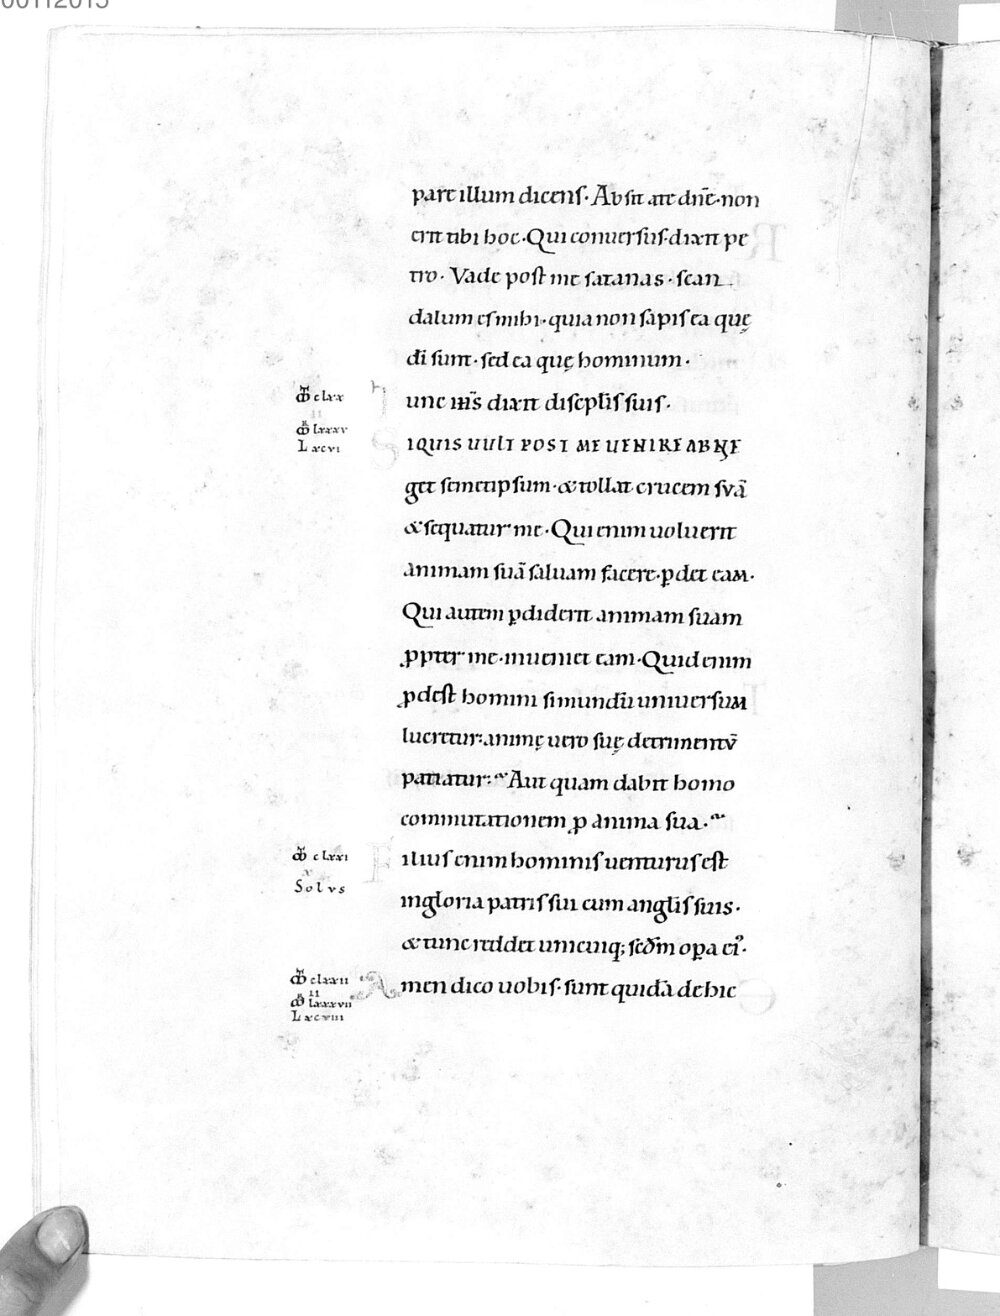 00112015
pare illum dicens· Absit ate dn̄e· non
erit tibi hoc· Qui conuersus· dixit pe
tro· Vade post me satanas· scan
dalum es mihi· quia non sapis ea quę
dī sunt· sed ea quę hominum·
ꝏ clxx
Tunc ih̄s dixit discipl̄is suis·
ꝏ lxxxv
II
L xcvi
SIQUIS UULT POST ME UENIRE ABNE
get semetipsum· & tollat crucem suā
& sequatur me· Qui enim uoluerit
animam suā saluam facere· ꝑdet eam·
Qui autem ꝑdiderit animam suam
ꝓpter me· inueniet eam· Quid enim
ꝓdest homini si mundū uniuersum
lucretur: animę uero suę detrimentū
patiatur: Aut quam dabit homo
commutationem ꝓ anima sua·
ꝏ clxxi
x
Solus
Filius enim hominis uenturus est
in gloria patris sui cum angl̄is suis·
& tunc reddet unicuiq; sc̄dm oꝑa ei᾽·
ꝏ clxxii
II
ꝏ lxxxvii
L xcviii
Amen dico uobis· sunt quidā de hic